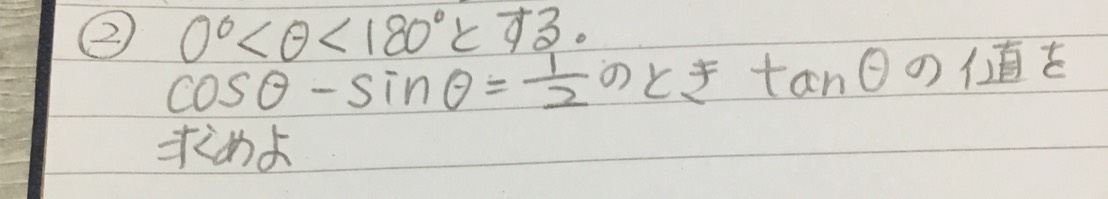 ② 0°<θ<180°とする。
cosθ-sinθ=1/2のとき tanθの値を
求めよ